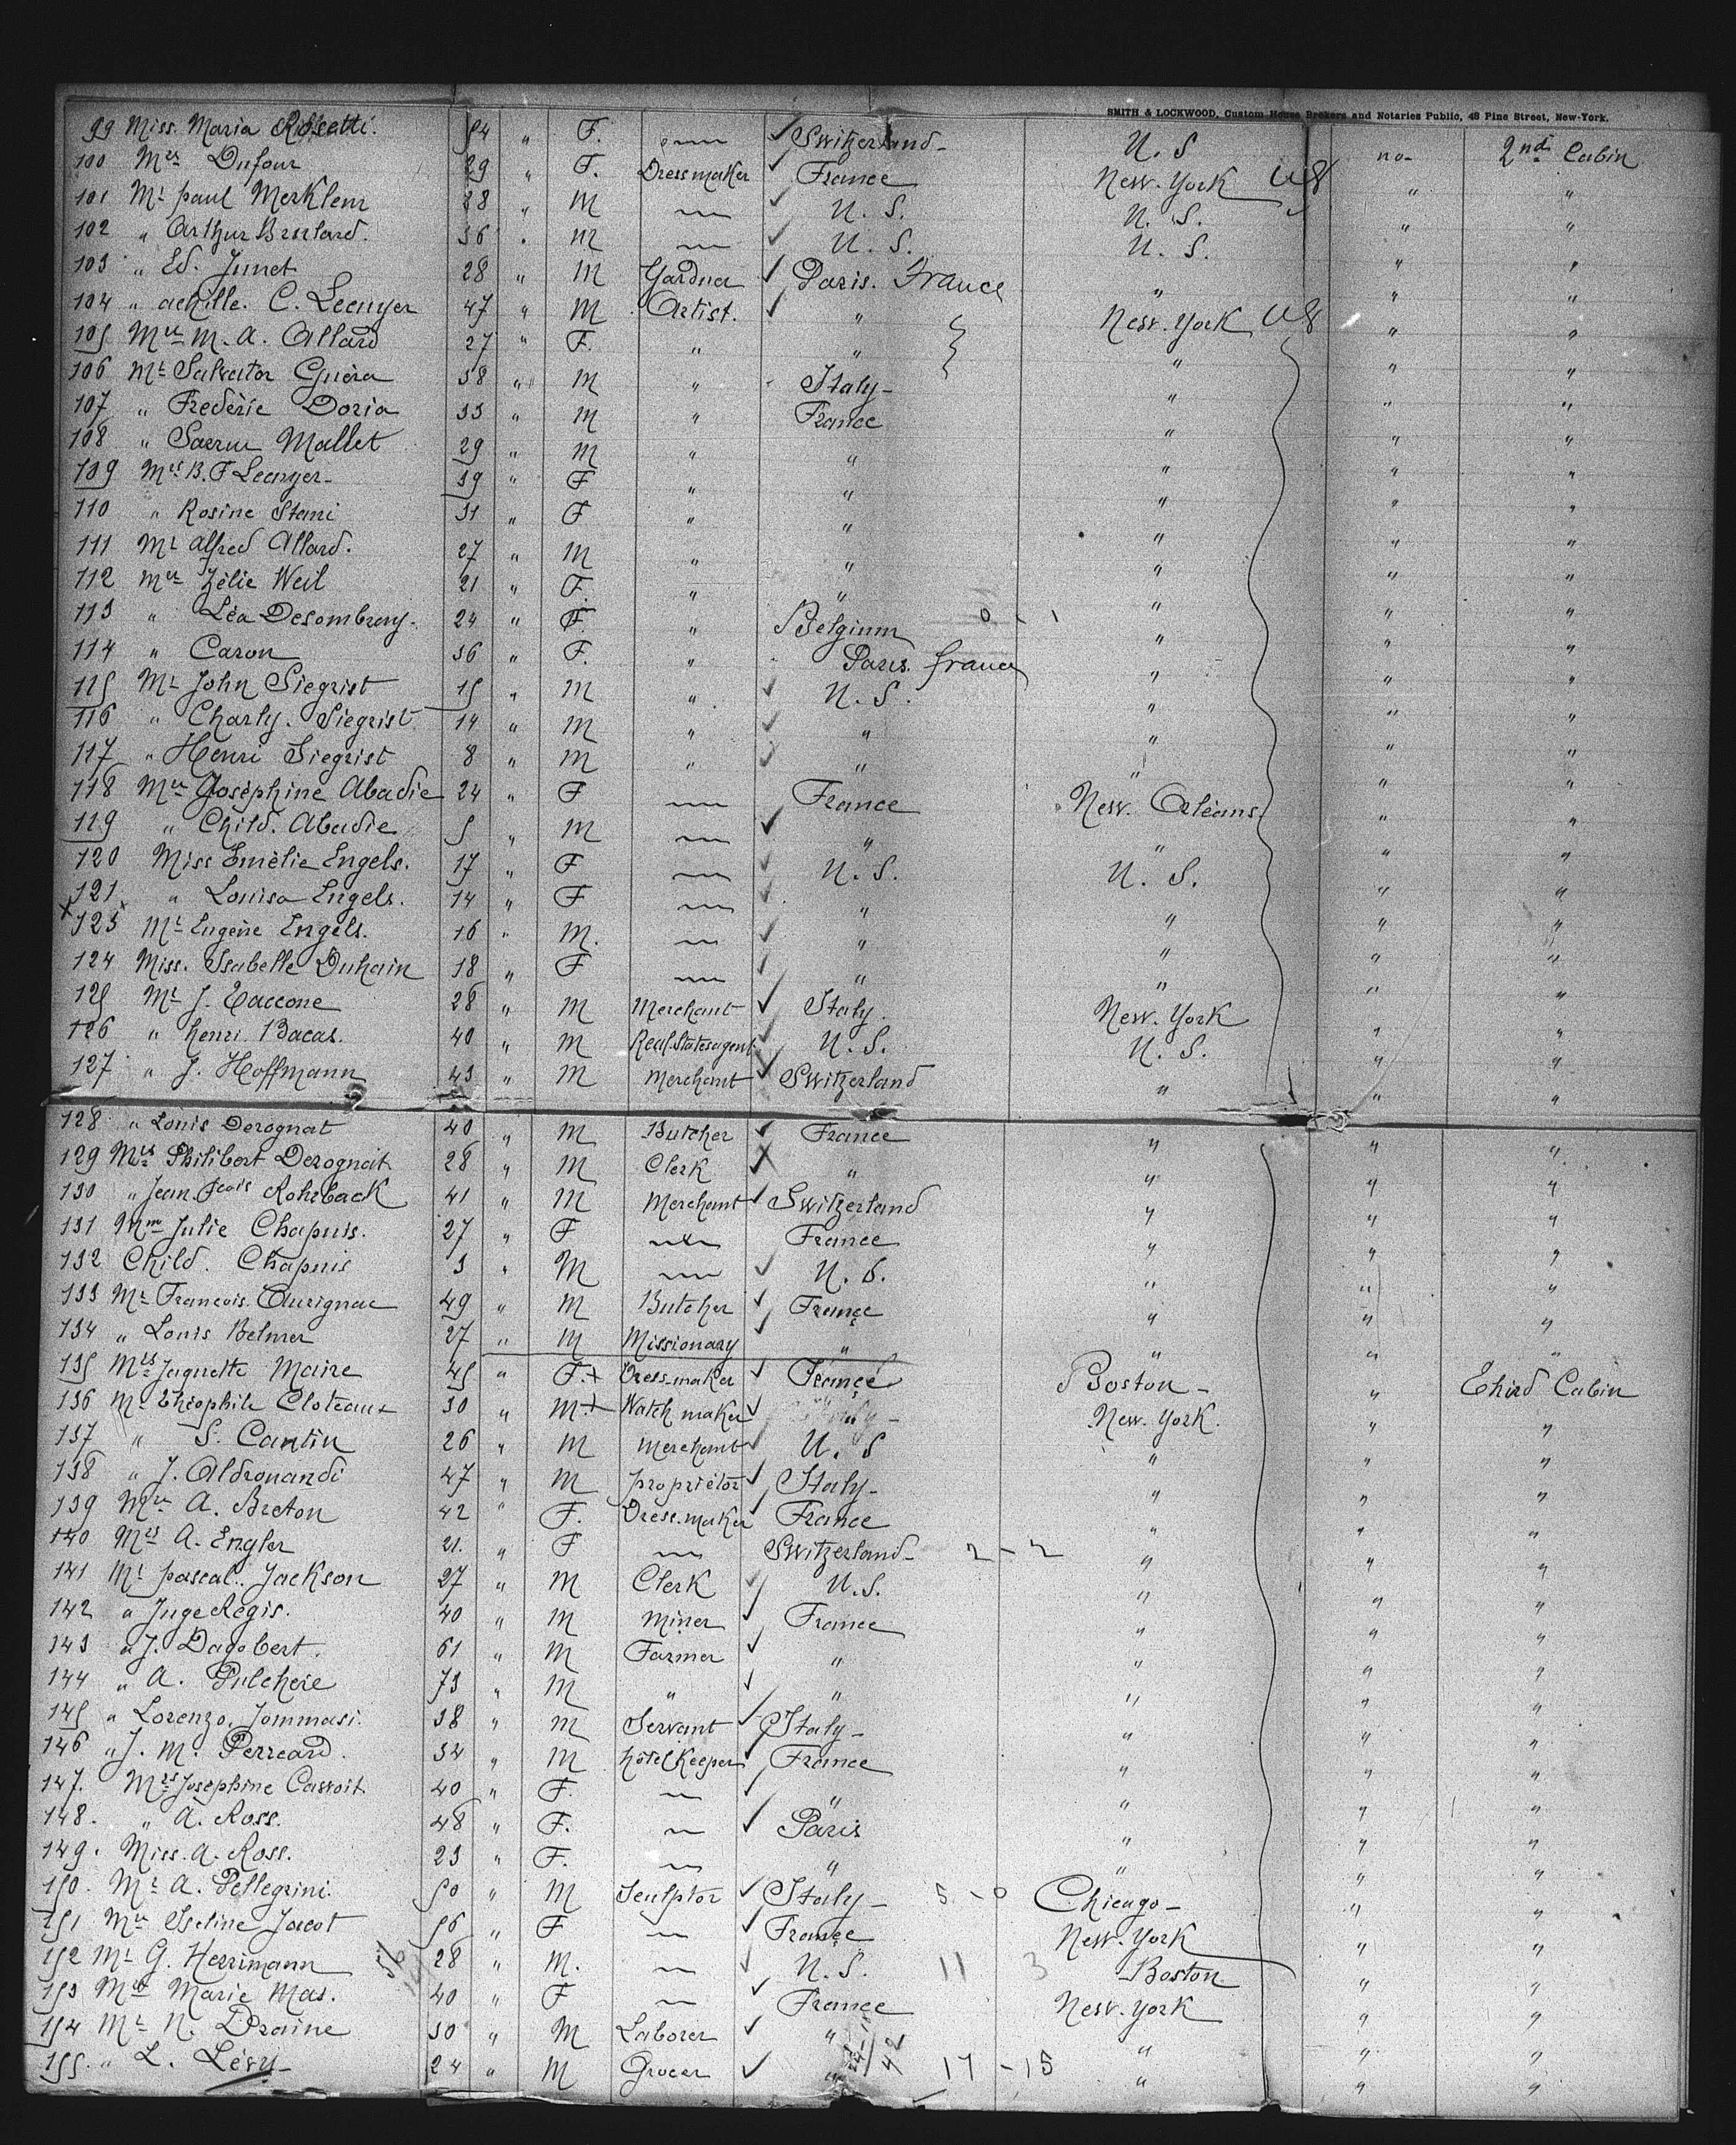 SMITH & LOCKWOOD, Custom House Brokers and Notaries Public, 48 Pine Street, New-York.
99 Miss. Maria Rossetti. 54 " F. — Switzerland - U. S no- 2nd Cabin
100 Mrs Dufour 29 " F. Dressmaker France New-York US " "
101 Mr paul Merklem 28 " M — U. S. U. S. " "
102 " Arthur Brulard. 36 " M — U. S. U. S. " "
103 " Ed. Junet 28 " M Gardner Paris. France " " "
104 " achille. C. Leenyer 47 " M Artist. " New-York US " "
105 Mrs M. A. Allard 27 " F. " " " " "
106 Mr Salvator Guèra 38 " M " Italy - " " "
107 " Frederie Doria 33 " M " France " " "
108 " Mallet 29 " M " " " " "
109 Mrs B. F Leenyer - 39 " F " " " " "
110 " Rosine Stani 31 " F " " " " "
111 Mr Alfred Allard. 27 " M " " " " "
112 Mrs Zélie Weil 21 " F. " " " " "
113 " Léa Desombrery - 24 " F. " Belgium 0 - 1 " " "
114 " Caron 36 " F. " Paris. france " " "
115 Mr John Siegrist 15 " M " U. S. " " "
116 " Charly. Siegrist 14 " M " " " " "
117 " Henri Siegrist 8 " M " " " " "
118 Mrs Joséphine Abadie 24 " F — France New. Orléans " "
119 " Child. Abadie 5 " M — " " " "
120 Miss Emèlie Engels. 17 " F — U. S. U. S. " "
121 " Louisa Engels. 14 " F — " " " "
x 123 Mr Eugène Engels. 16 " M. — " " " "
124 Miss. Isabelle Duhain 18 " F — " " " "
125 Mr J. Taccone 28 " M Merchant Italy. New. York " "
126 " henri. Bacas. 40 " M Real.Statesagent. U. S. U. S. " "
127 " J. Hoffmann 43 " M Merchant Switzerland " " "
128 " Louis Derognat 40 " M Butcher France " " "
129 Mrs Philibert Derognat 28 " M Clerk " " " "
130 " Jean Rohrback 41 " M Merchant Switzerland " " "
131 Mme Julie Chapuis. 27 " F — France " " "
132 Child. Chapuis 3 " M — U. S. " " "
133 Mr Francois. Aurignac 49 " M Butcher France " " "
134 " Louis Belmer 27 " M Missionary " " " "
135 Mrs Jaquette Maire 45 " F. + Dress-maker France Boston - " Third Cabin
136 Mr Théophile Cloteaux 30 " M. + Watch maker New. York. " "
137 " S. Cantin 26 " M Merchant U. S " " "
138 " J. Aldrouandi 47 " M propriétor Italy - " " "
139 Mrs A. Breton 42 " F. Dress.maker France " " "
140 Mrs A. Engler 21. " F — Switzerland - 2 - 2 " " "
141 Mr pascal. Jackson 27 " M Clerk U. S. " " "
142 " Juge Régis. 40 " M Miner France " " "
143 " J. Dagobert. 61 " M Farmer " " " "
144 " A. Pulchere 73 " M " " " " "
145 " Lorenzo. Tommasi. 38 " M Servant Italy - " " "
146 " J. M. Perreard. 34 " M hôtel Keeper France " " "
147. Mrs Joséphine Cassoit. 40 " F. — " " " "
148. " A. Ross. 48 " F. — Paris " " "
149. Miss. A. Ross. 23 " F. — " " " "
150. Mr A. Pellegrini. 50 " M Sculptor Italy - 5 - 0 Chicago - " "
151 Mrs Iseline Jacot 56 " F — France New. York " "
152 Mr G. Herrimann 28 " M. — U. S. 11 3 Boston " "
153 Mrs Marie Mas. 40 " F — France New. York " "
154 Mr N. Draine 30 " M Laborer " " " "
155. " L. Lévy - 24 " M Grocer " 42 17 - 15 " " "